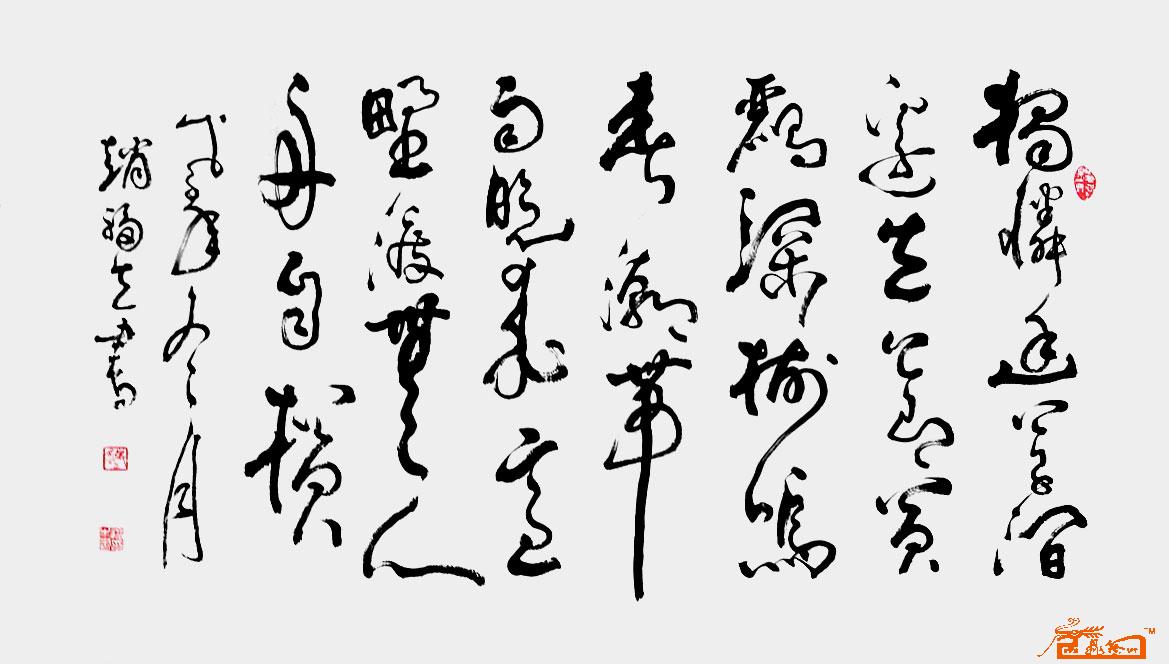 獨憐幽草澗
邊生上有黃
鸝深樹鳴
春潮帶
雨晚來急
野渡無人
舟自橫
年冬月
趙福書